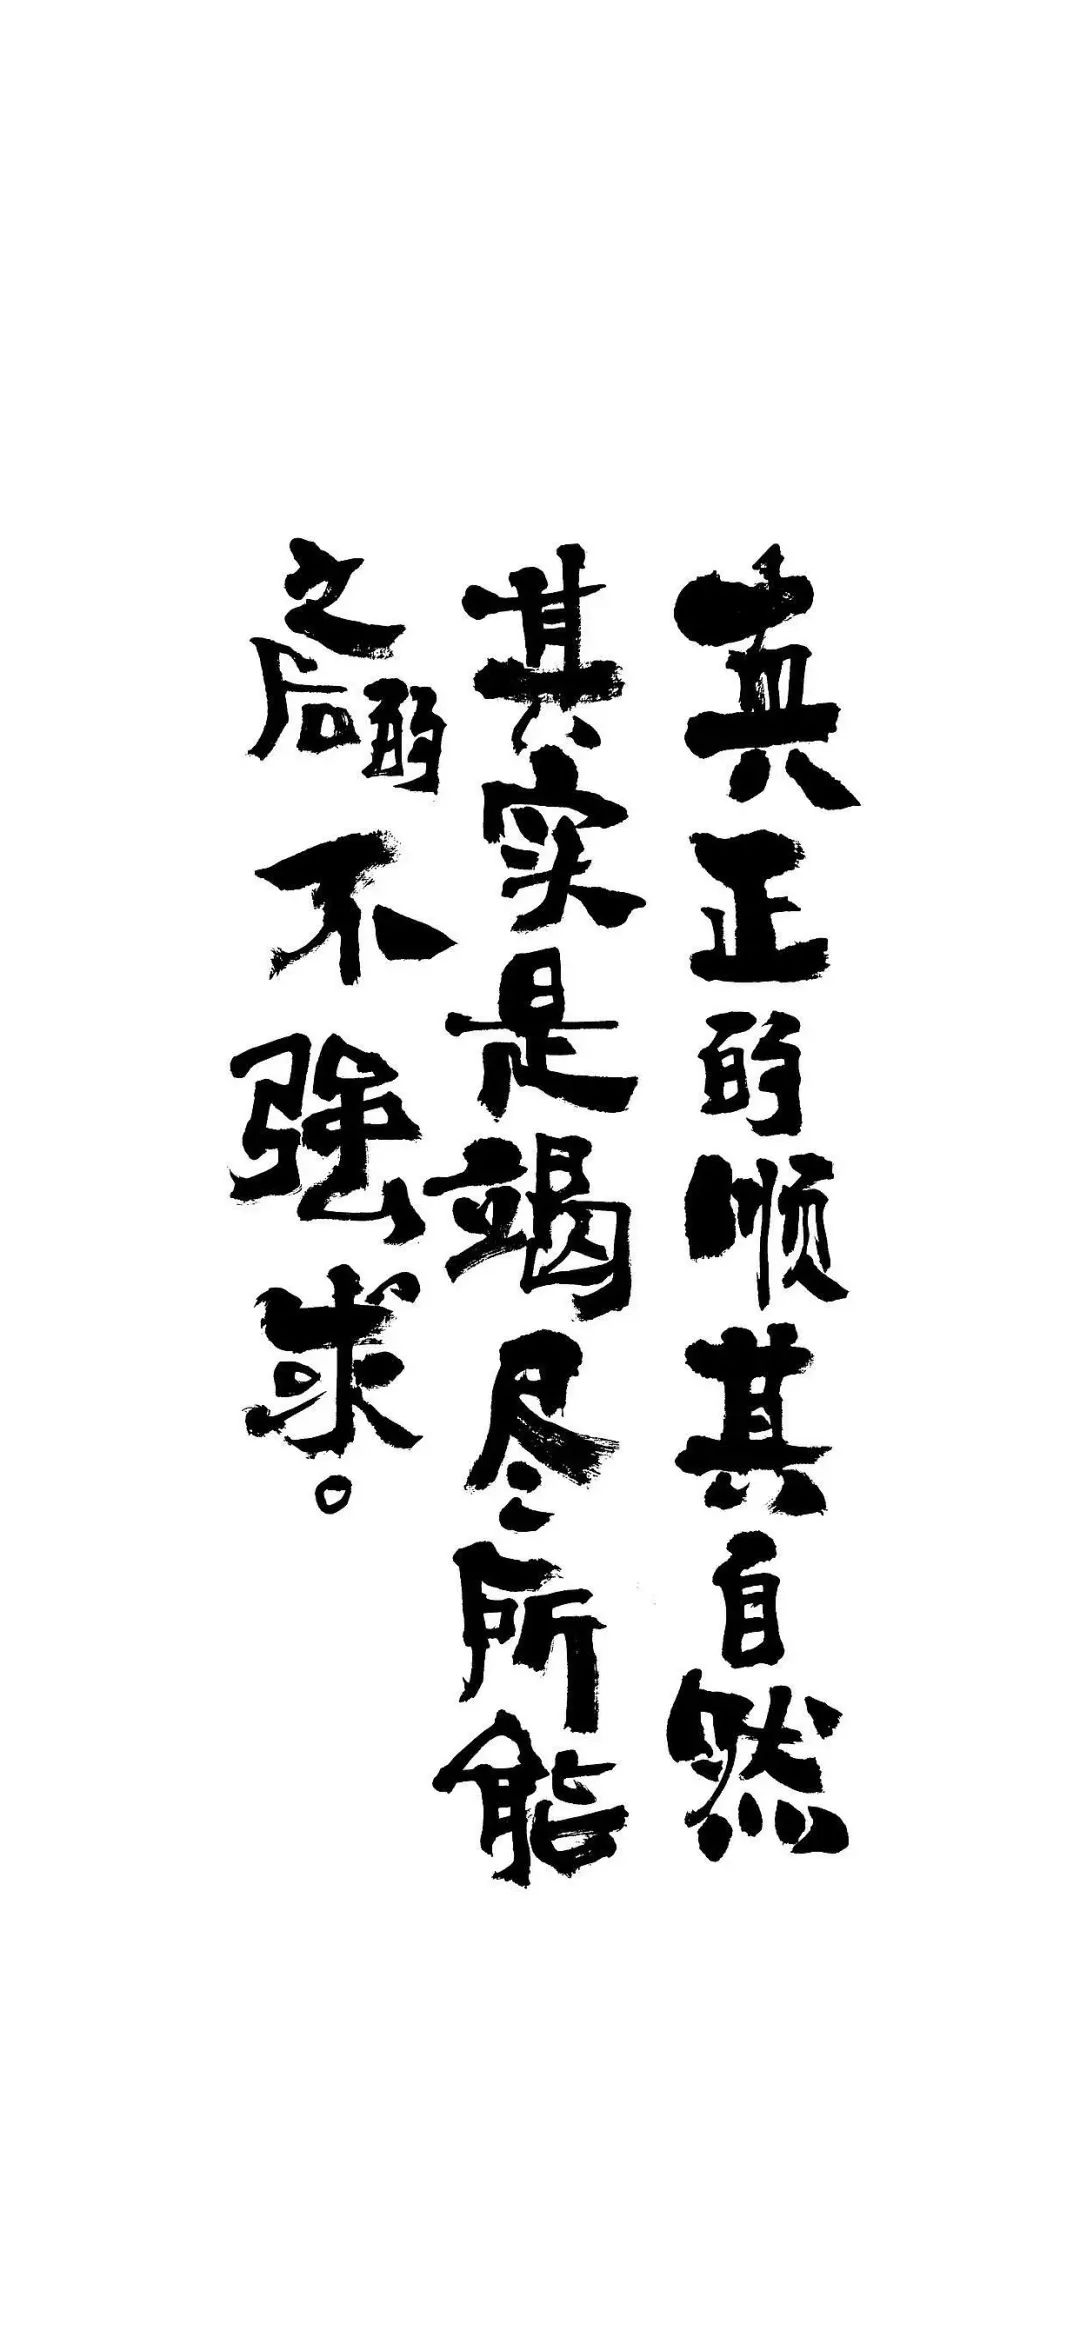 真正的顺其自然
其实是竭尽所能
之后的不强求。